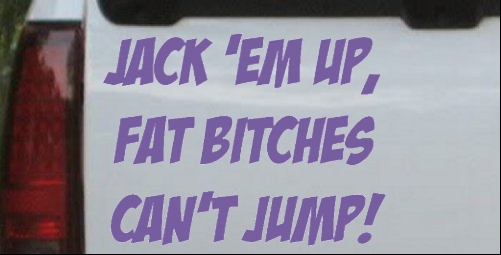 JACK 'EM UP,
FAT BITCHES
CAN'T JUMP!